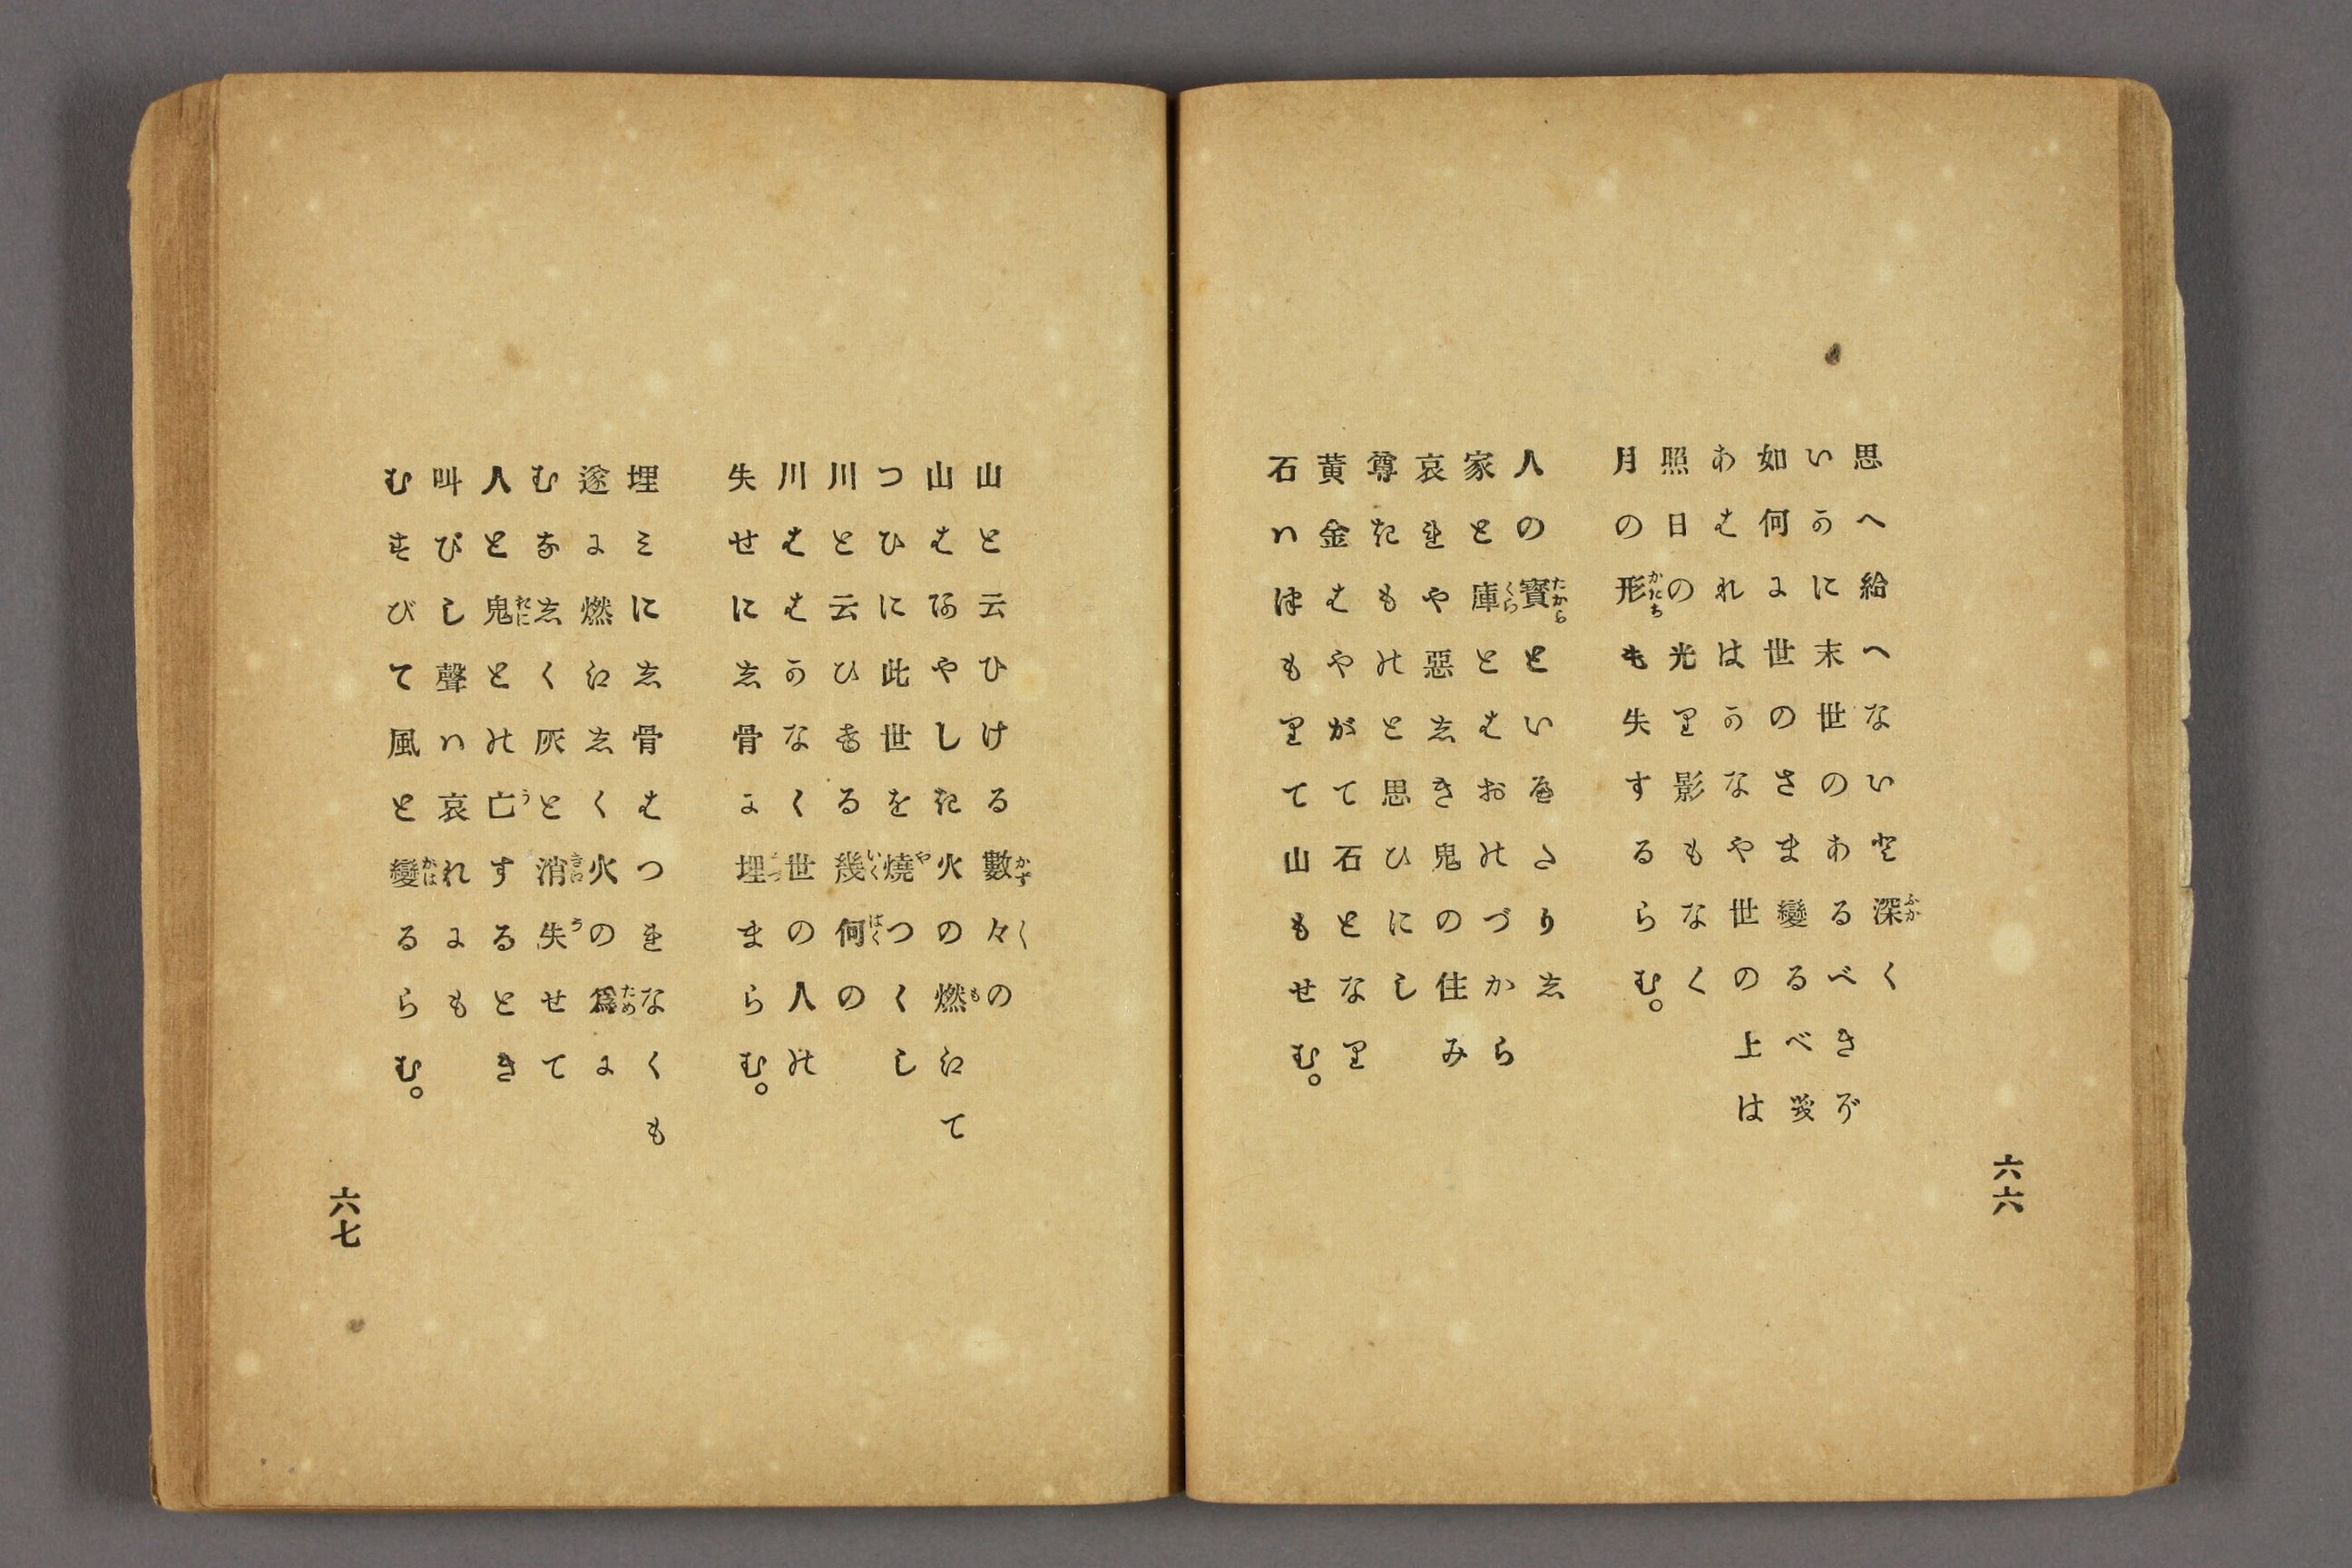 思へ給へないと深く
いかに末世のあるべきぞ
如何に世のさま變るべき
あはれはかなや世の上は
照日の光り影もなく
月の形も失するらむ。
人の寶といたりし
家と庫とはおのづから
哀れや惡しき鬼の住み
尊きものと思ひにし
黄金はやがて石となり
石ハつもりて山もせむ。
六六
山と云ひける數々の
山はあやしき火の燃えて
つひに此世を燒つくし
川と云ひける幾何の
川ははかなく世の人の
失せにし骨に埋まらむ。
埋ミにし骨はつれなくも
遂に燃えしく火の爲に
むなしく灰と消失せて
人と鬼との亡するとき
叫びし聲ハ哀れにも
むすびて風と變るらむ。
六七